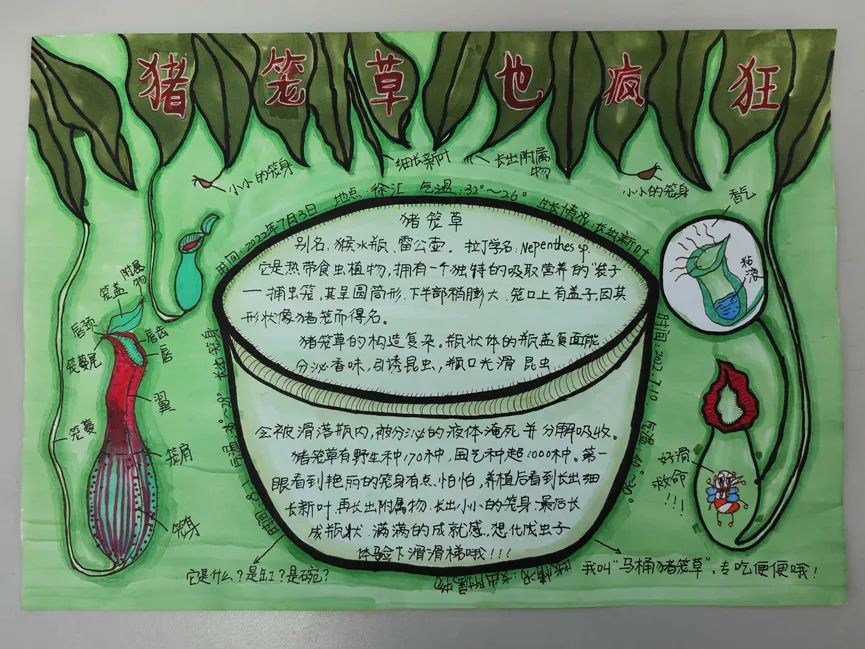 猪笼草也疯狂
细长新叶
长出附属物
小小的笼身
小小的笼身
香气
粘液
时间:2022年7月3日 地点:徐汇 气温:32°~26° 生长情况:长出新叶
猪笼草
别名:猴水瓶、雷公壶。拉丁学名:Nepenthes sp.
它是热带食虫植物,拥有一个独特的吸取营养的"袋子
—捕虫笼,其呈圆筒形.下半部稍膨大.笼口上有盖子,因其
形状像猪笼而得名。
猪笼草的构造复杂。瓶状体的瓶盖复面能
分泌香味,引诱昆虫,瓶口光滑 昆虫
会被滑落瓶内,被分泌的液体淹死并分解吸收。
猪笼草有野生种170种,园艺种超1000种。第一
眼看到艳丽的笼身有点.怕怕,养植后看到长出细
长新叶,再长出附属物.长出小小的笼身.最后长
成瓶状.满满的成就感.想化成虫子
体验下滑滑梯哦!!!
附属物
笼盖
唇颈
唇齿
唇
笼蔓尾
翼
笼蔓
笼肩
笼身
时间:2022.7.10
好滑
救命
!!!
它是什么?是缸?是碗?
我叫"马桶猪笼草",专吃便便哦!